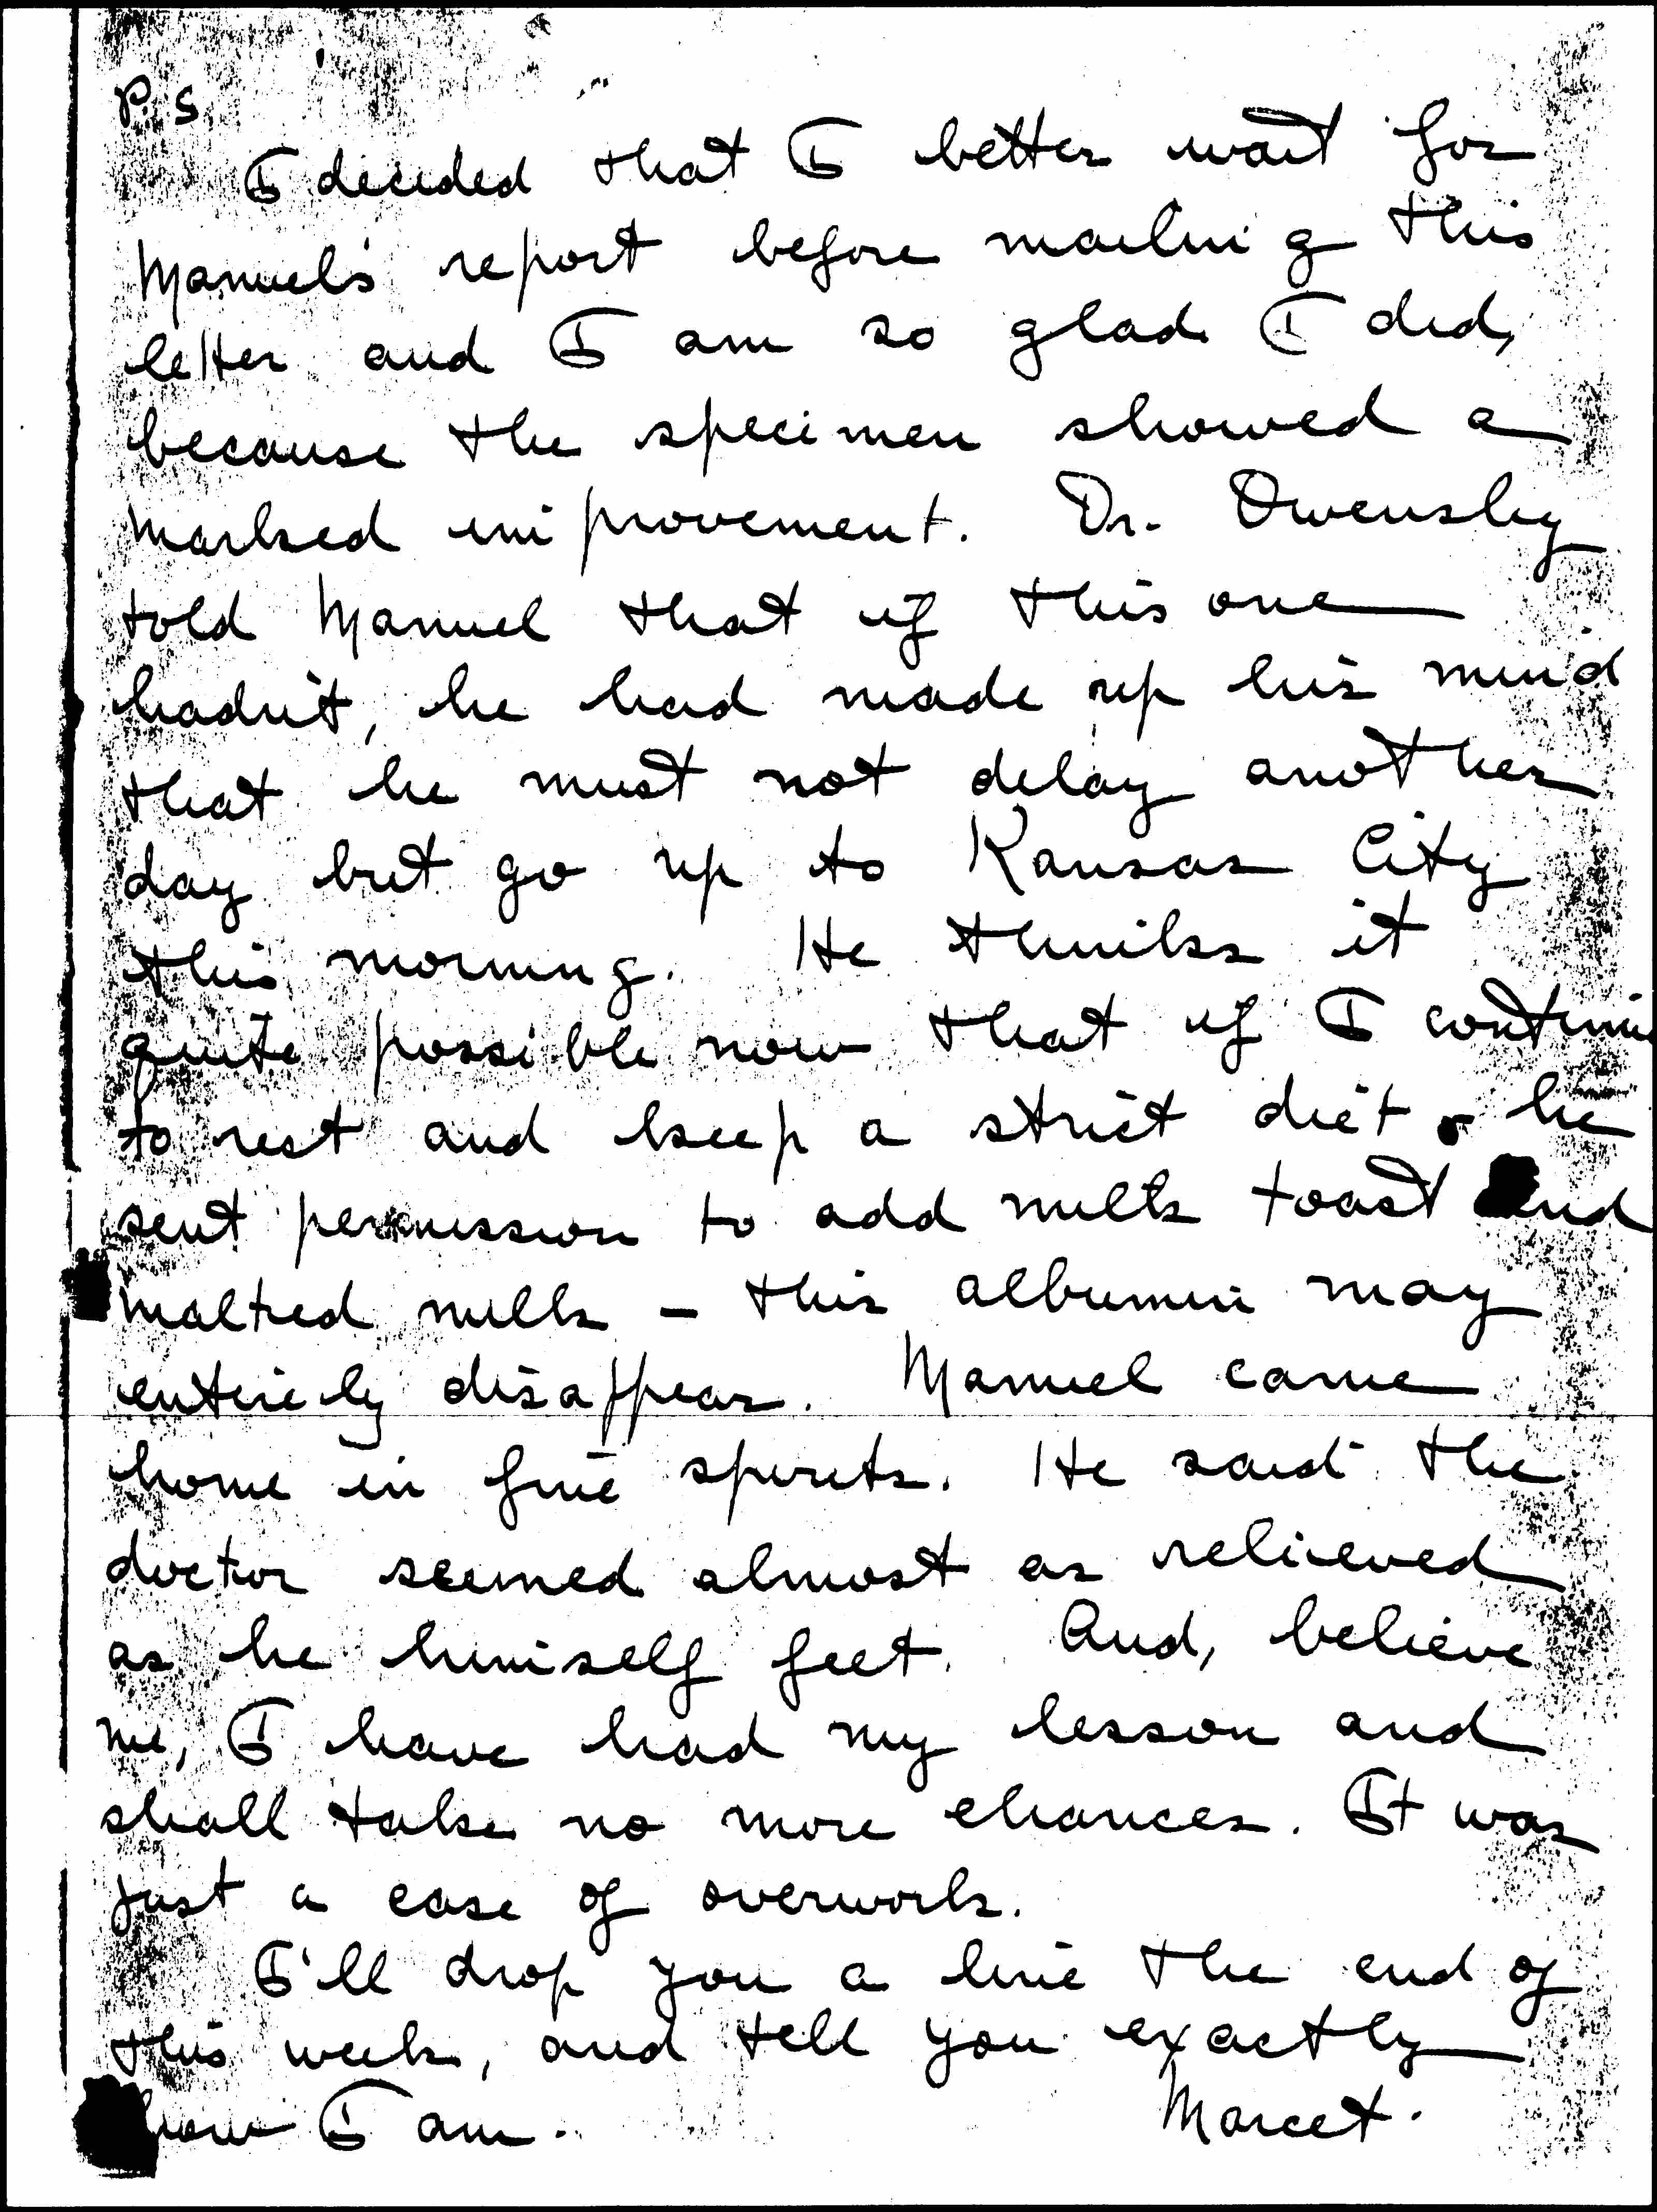 P.S.
I decided that I better wait for
Manuel's report before mailing this
letter and I am so glad I did,
because the specimen showed a
marked improvement. Dr. Owensley
told Manuel that if this one
hadn't, he had made up his mind
that he must not delay another
day but go up to Kansas City
this morning. He thinks it
quite possible now that if I continue
to rest and keep a strict diet - he
sent permission to add milk toast and
malted milk - this albumin may
entirely disappear. Manuel came
home in fine spirits. He said the
doctor seemed almost as relieved
as he himself felt. And, believe
me, I have had my lesson and
shall take no more chances. It was
just a case of overwork.
I'll drop you a line the end of
this week, and tell you exactly
how I am.
Marcet.